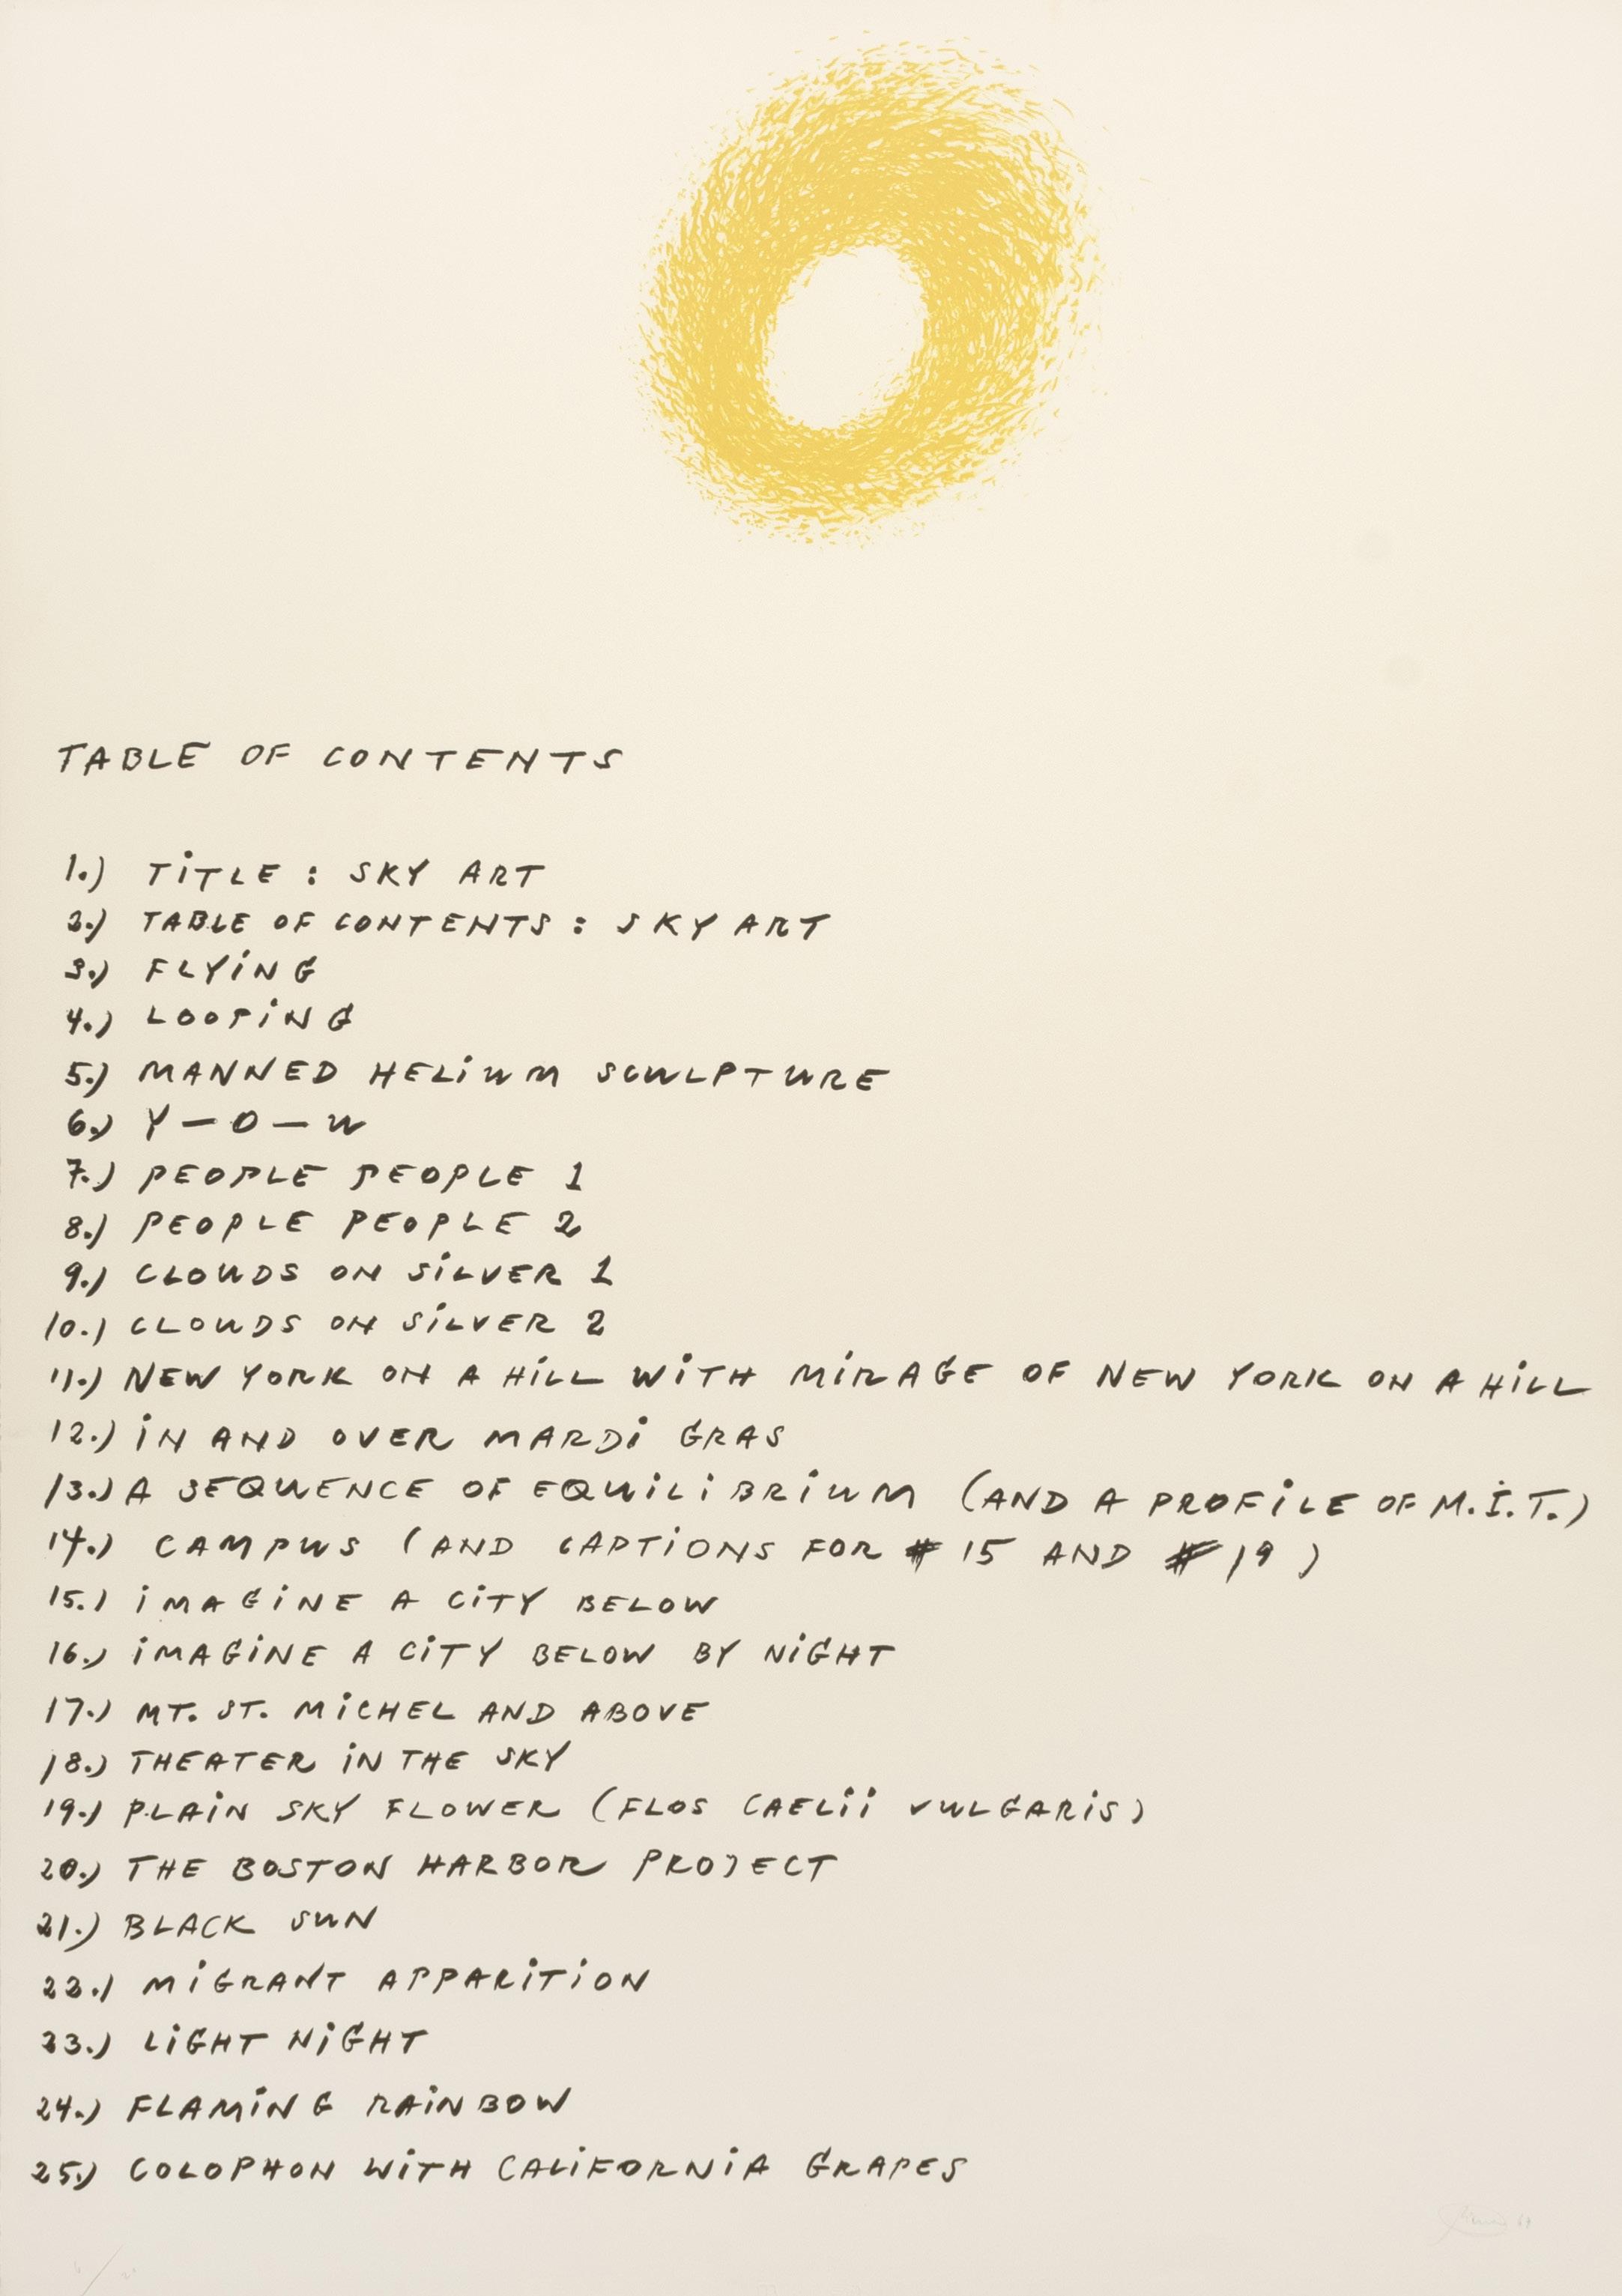 TABLE OF CONTENTS
1.) TiTLE : SKY ART
2.) TABLE OF CONTENTS : SKY ART
3.) FLYiNG
4.) LOOPiNG
5.) MANNED HELiUM SCULPTURE
6.) Y – O – U
7.) PEOPLE PEOPLE 1
8.) PEOPLE PEOPLE 2
9.) CLOUDS ON SiLVER 1
10.) CLOUDS ON SiLVER 2
11.) NEW YORK ON A HiLL WiTH MiRAGE OF NEW YORK ON A HiLL
12.) iN AND OVER MARDi GRAS
13.) A SEQUENCE OF EQUiLiBRiUM (AND A PROFiLE OF M.I.T.)
14.) CAMPUS (AND CAPTiONS FOR # 15 AND # 19 )
15.) iMAGiNE A CiTY BELOW
16.) iMAGiNE A CiTY BELOW BY NiGHT
17.) MT. ST. MiCHEL AND ABOVE
18.) THEATER iN THE SKY
19.) PLAiN SKY FLOWER (FLOS CAELii VULGARiS)
20.) THE BOSTON HARBOR PROJECT
21.) BLACK SUN
22.) MiGRANT APPARiTiON
23.) LiGHT NiGHT
24.) FLAMiNG RAiNBOW
25.) COLOPHON WiTH CALiFORNiA GRAPES